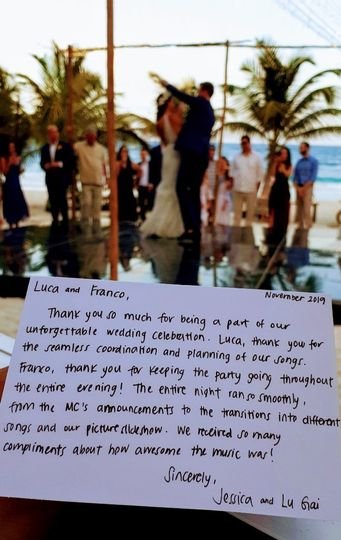 Luca and Franco,
November 2019
Thank you so much for being a part of our
unforgettable wedding celebration. Luca, thank you for
the seamless coordination and planning of our songs.
Franco, thank you for keeping the party going throughout
the entire evening! The entire night ran so smoothly,
from the MC's announcements to the transitions into different
songs and our picture slideshow. We received so many
compliments about how awesome the music was!
Sincerely,
Jessica and Lu Gai